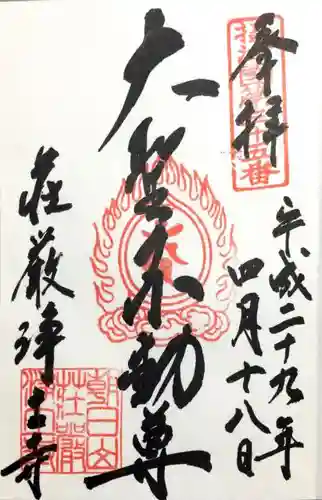 奉拝
平成二十九年
四月十八日
大聖不動尊
荘厳浄土寺